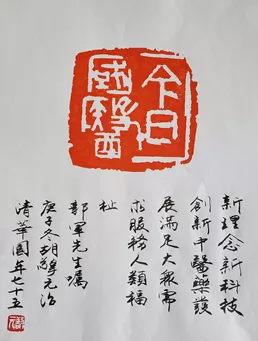 今日
國醫
新理念新科技
創新中醫藥發
展滿足大衆需
求服務人類福
祉
軍先生嘱
庚子冬胡元治
清華園年七十五